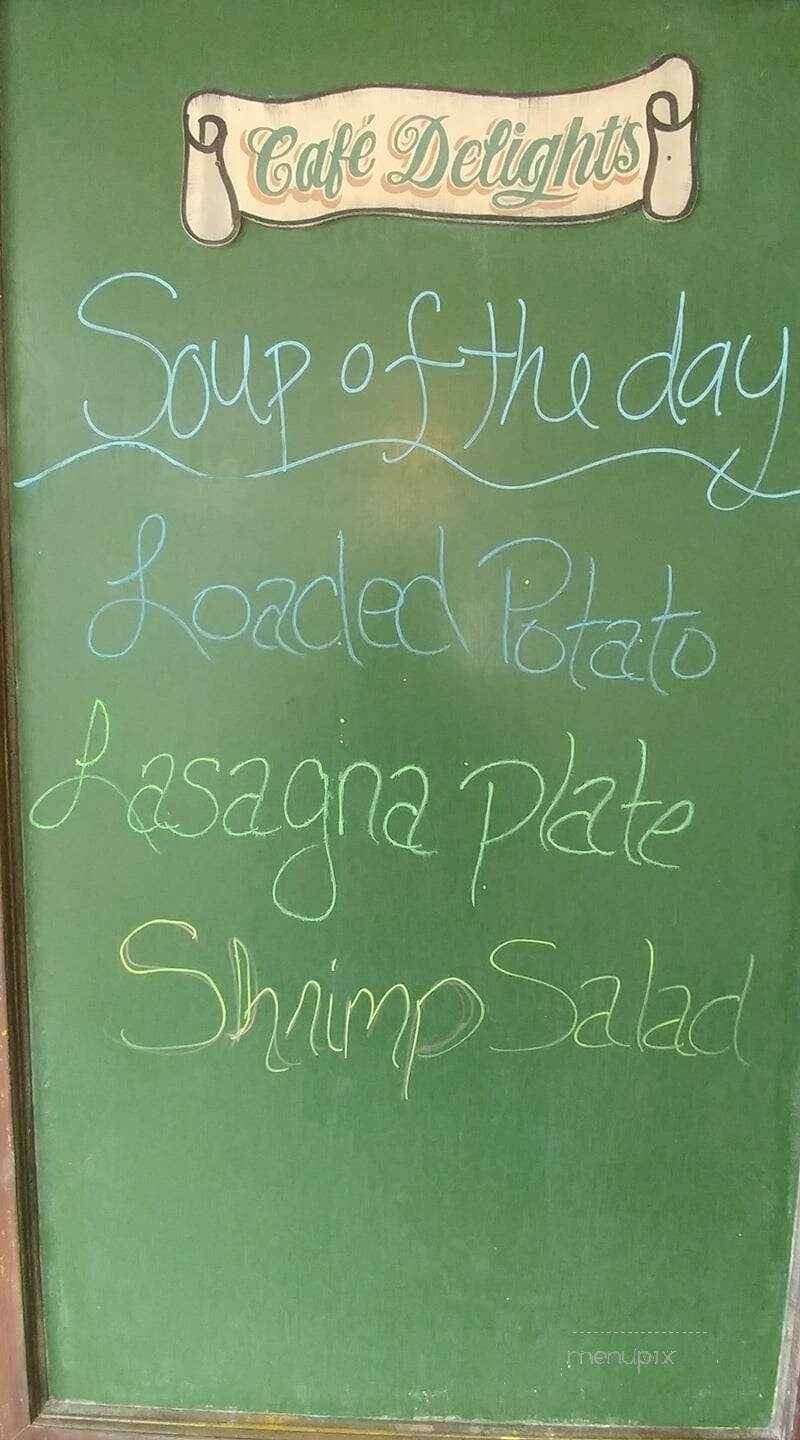 Café Delights
Soup of the day
Loaded Potato
Lasagna plate
Shrimp Salad
menupix